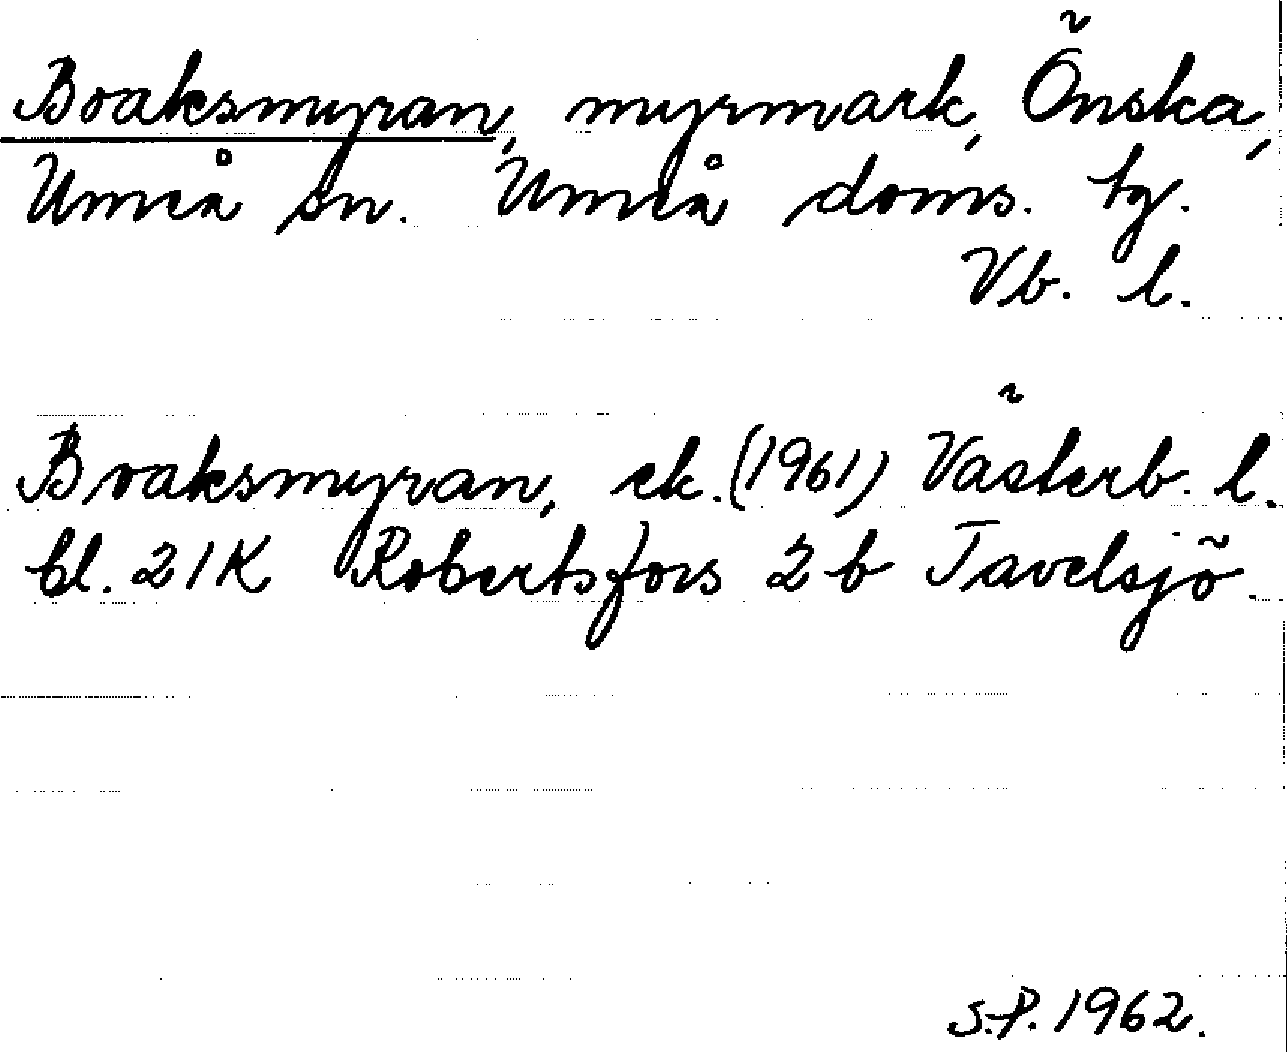 Boaksmyran, myrmark, Önska,
Umeå sn. Umeå doms. tg.
Vb. l.
Boaksmyran, ek. (1961) Västerb. l.
bl. 21K Robertsfors 2 b Tavelsjö.
S.P. 1962.